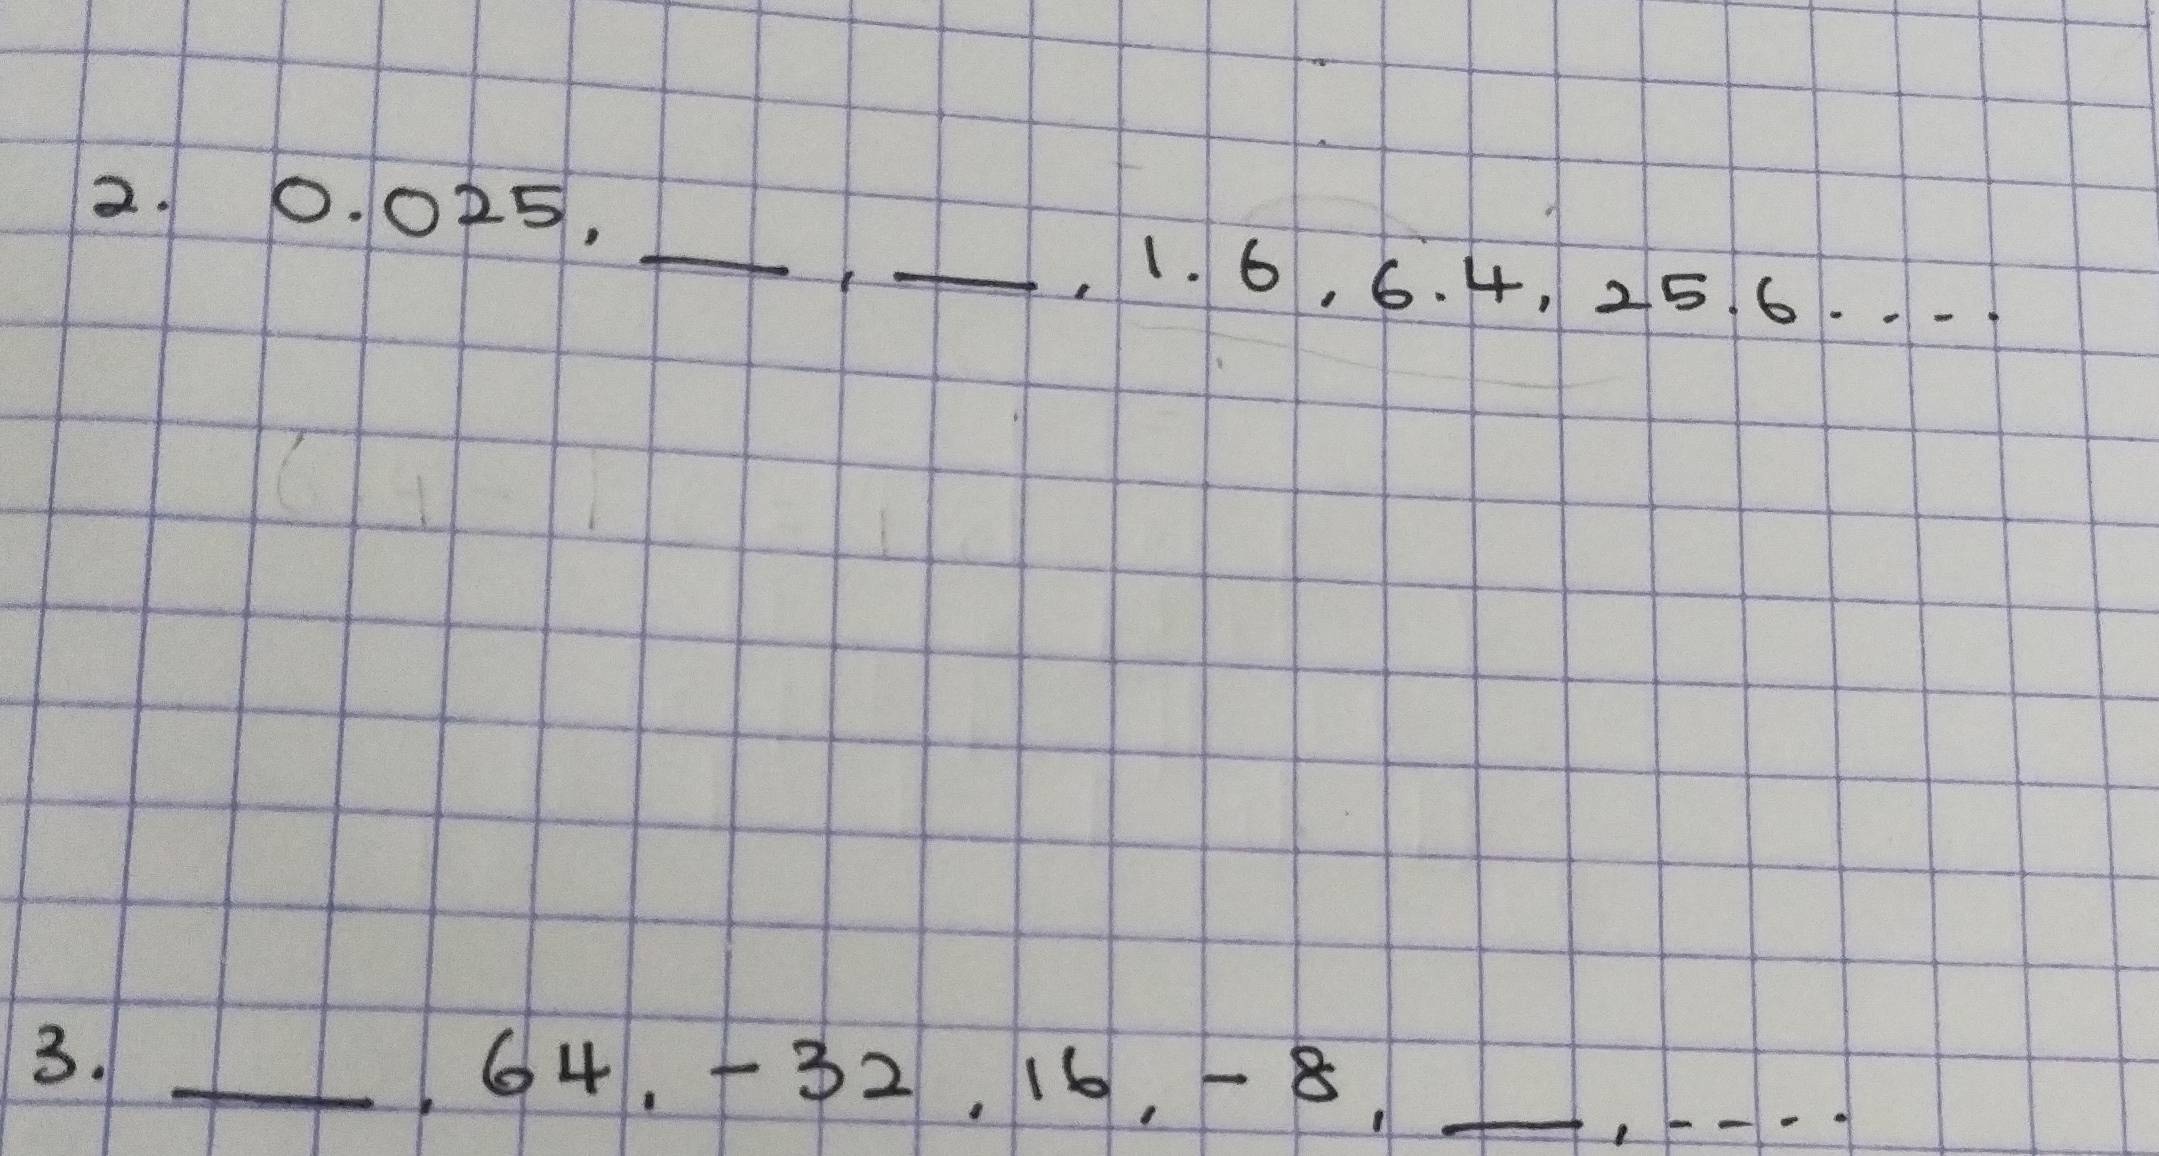 2. 0.025, ___, ___, 1.6, 6.4, 25.6....
3. ___, 64, -32, 16, -8, ___, -----